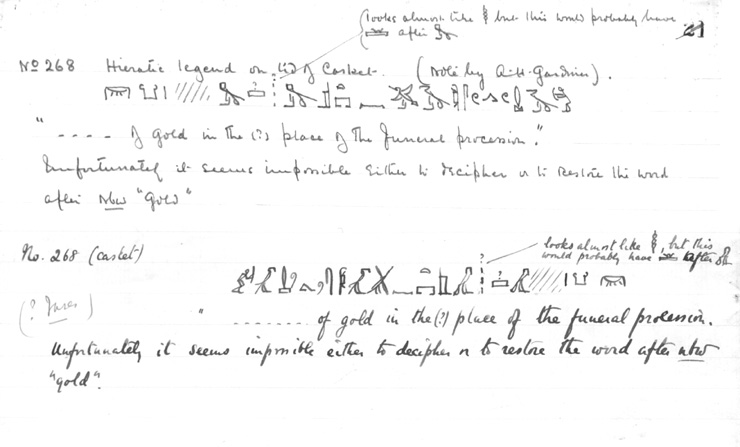 looks almost like but this would probably have
after
21
No 268 Hieratic legend on lid of Casket. (Note by A.H. Gardiner).
" - - - - of gold in the (?) place of the funeral procession."
Unfortunately it seems impossible either to decipher or to restore the word
after nbw "gold"
looks almost like , but this
would probably have after
No. 268 (casket)
?
(? )
" ........ of gold in the (?) place of the funeral procession.
Unfortunately it seems impossible either to decipher or to restore the word after nbw
"gold".